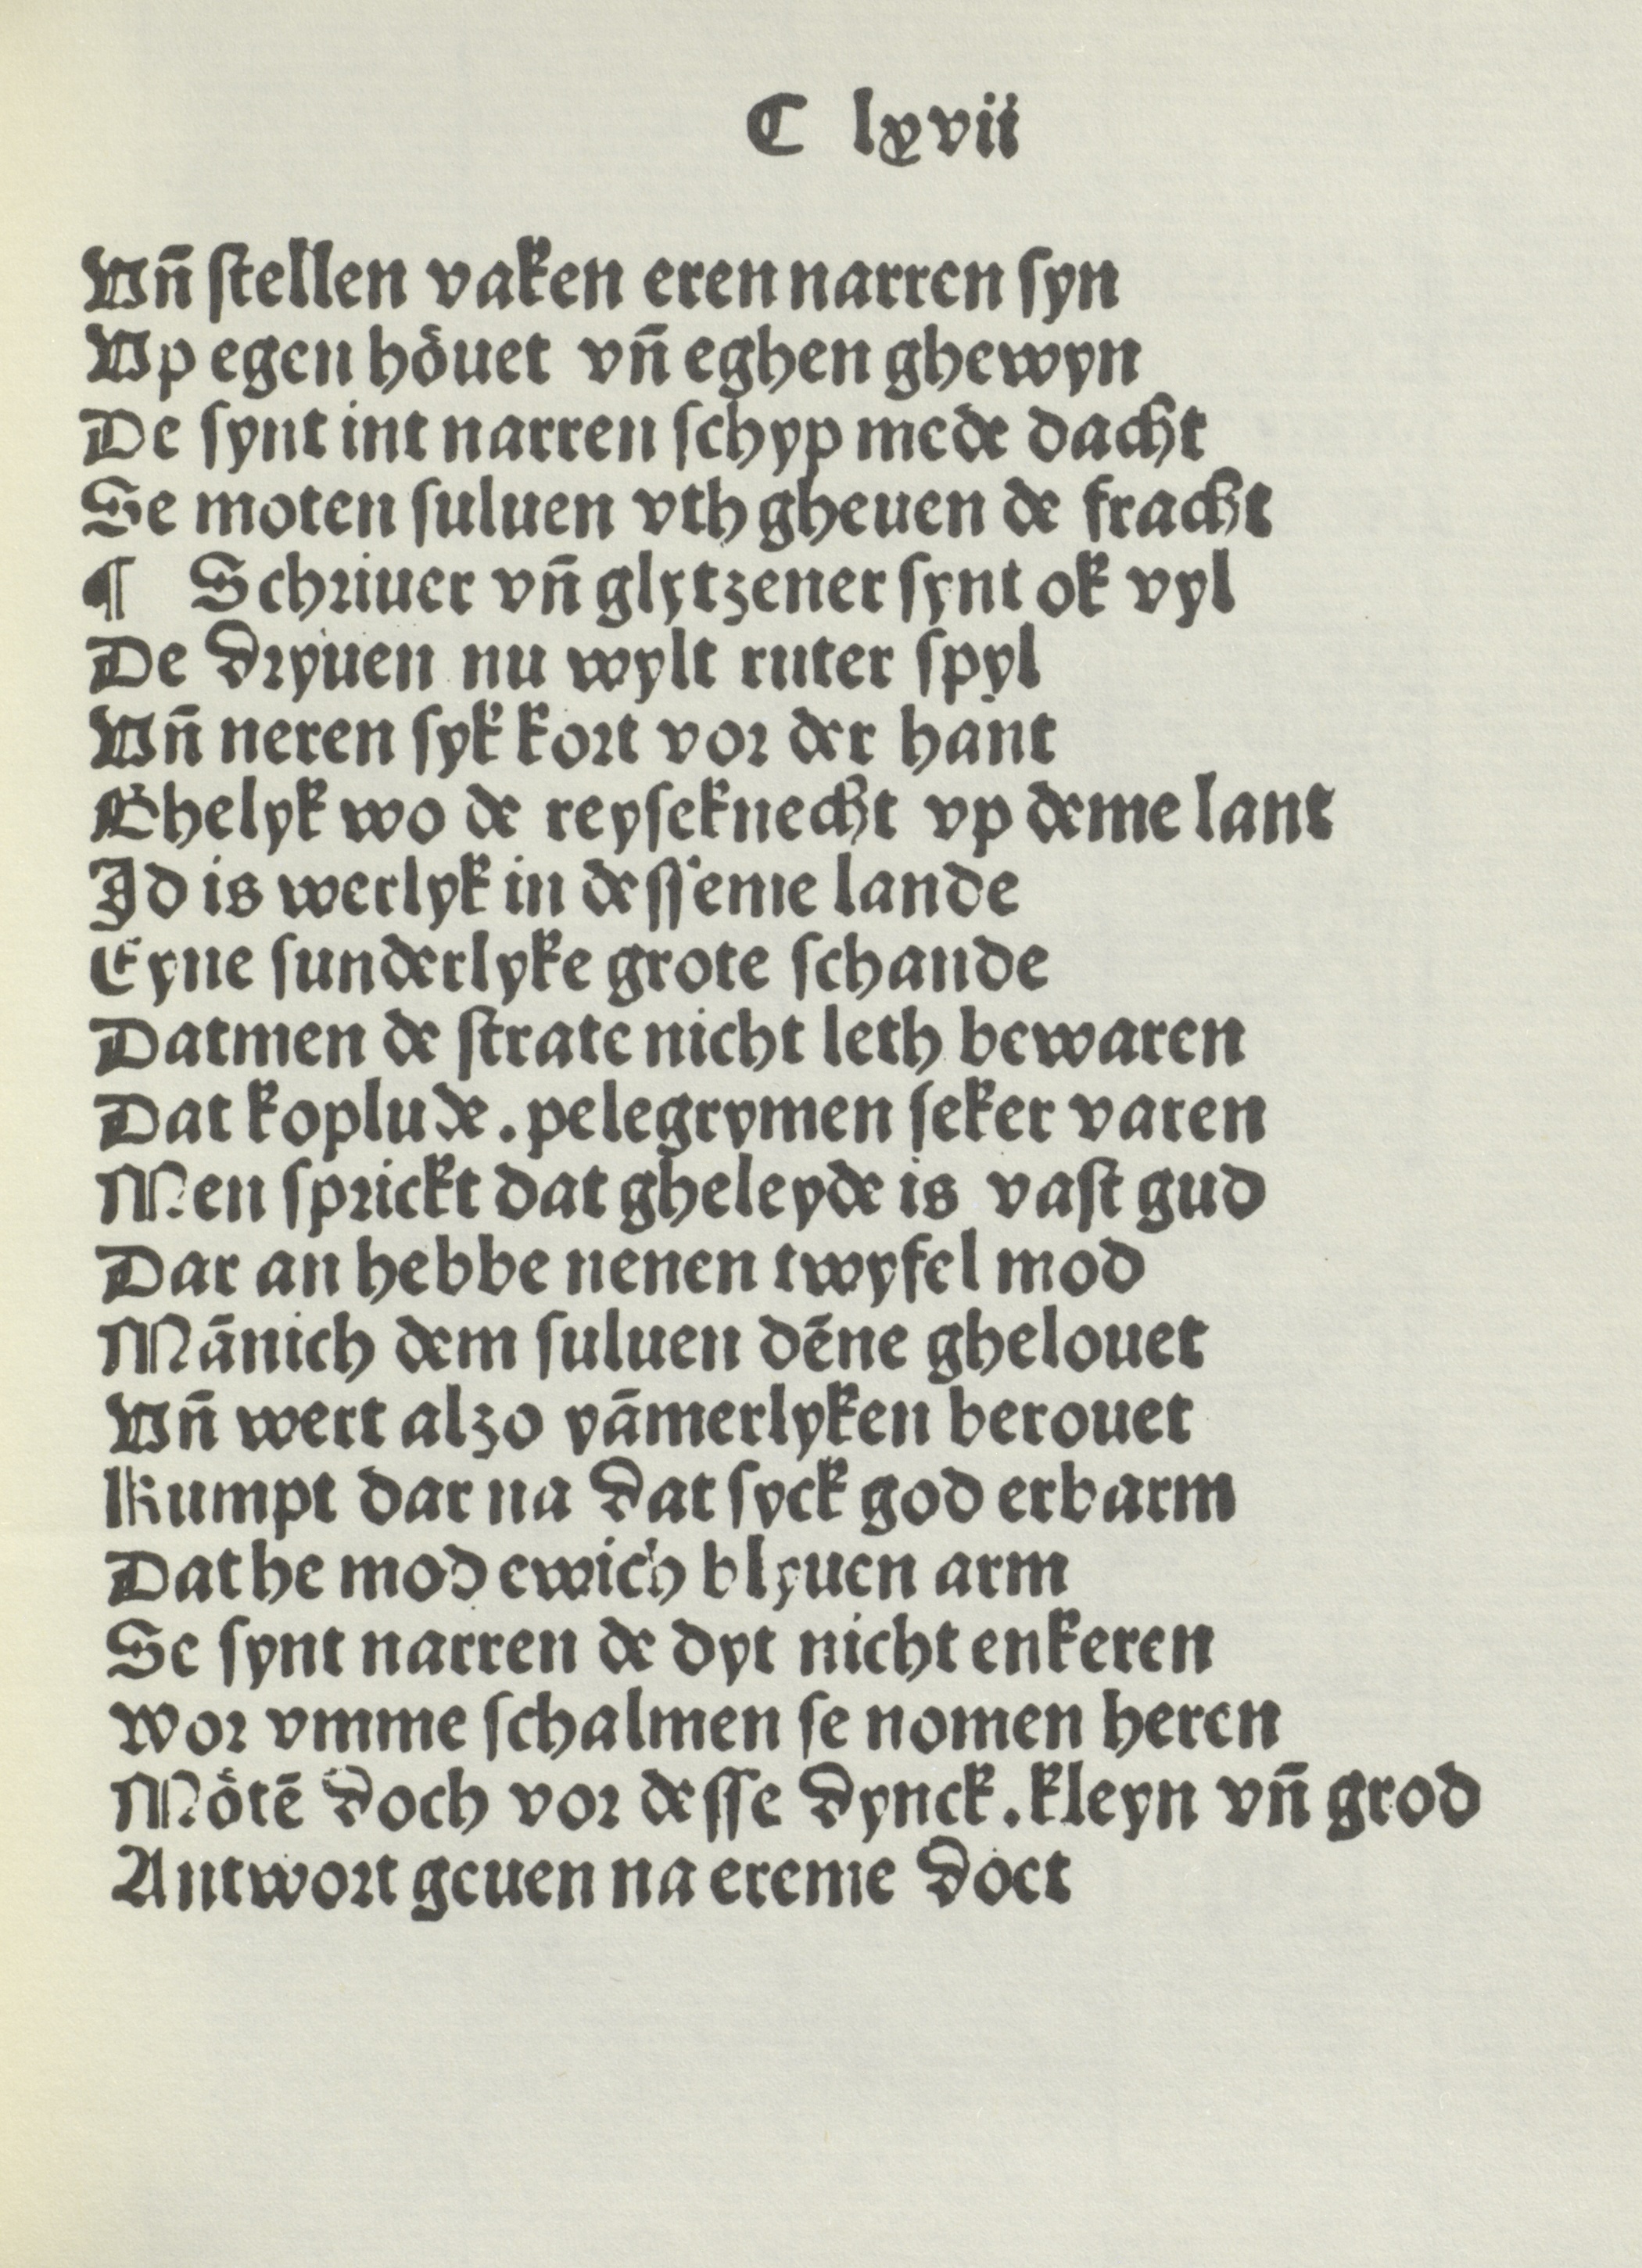 C lxvii
Vñ ſtellen vaken eren narren ſyn
Vp egen hoͤuet vñ eghen ghewyn
De ſynt int narren ſchyp mede dacht
Se moten ſuluen vth gheuen de fracht
¶ Schriuer vñ glytzener ſynt ok vyl
De dryuen nu wylt ruter ſpyl
Vñ neren ſyk kort vor der hant
Ghelyk wo de reyſeknecht vp deme lant
Id is werlyk in deſſeme lande
Eyne ſunderlyke grote ſchande
Datmen de ſtrate nicht leth bewaren
Dat koplude. pelegrymen ſeker varen
Men sprickt dat gheleyde is vaſt gud
Dar an hebbe nenen twyfel mod
Mānich dem ſuluen dēne ghelouet
Vñ wert alzo yāmerlyken berouet
Kumpt dar na dat ſyck god erbarm
Dat he mod ewich blyuen arm
Se ſynt narren de dyt nicht enkeren
Wor vmme ſchalmen ſe nomen heren
Moͤtē doch vor deſſe dynck. kleyn vñ grod
Antwort geuen na ereme doet